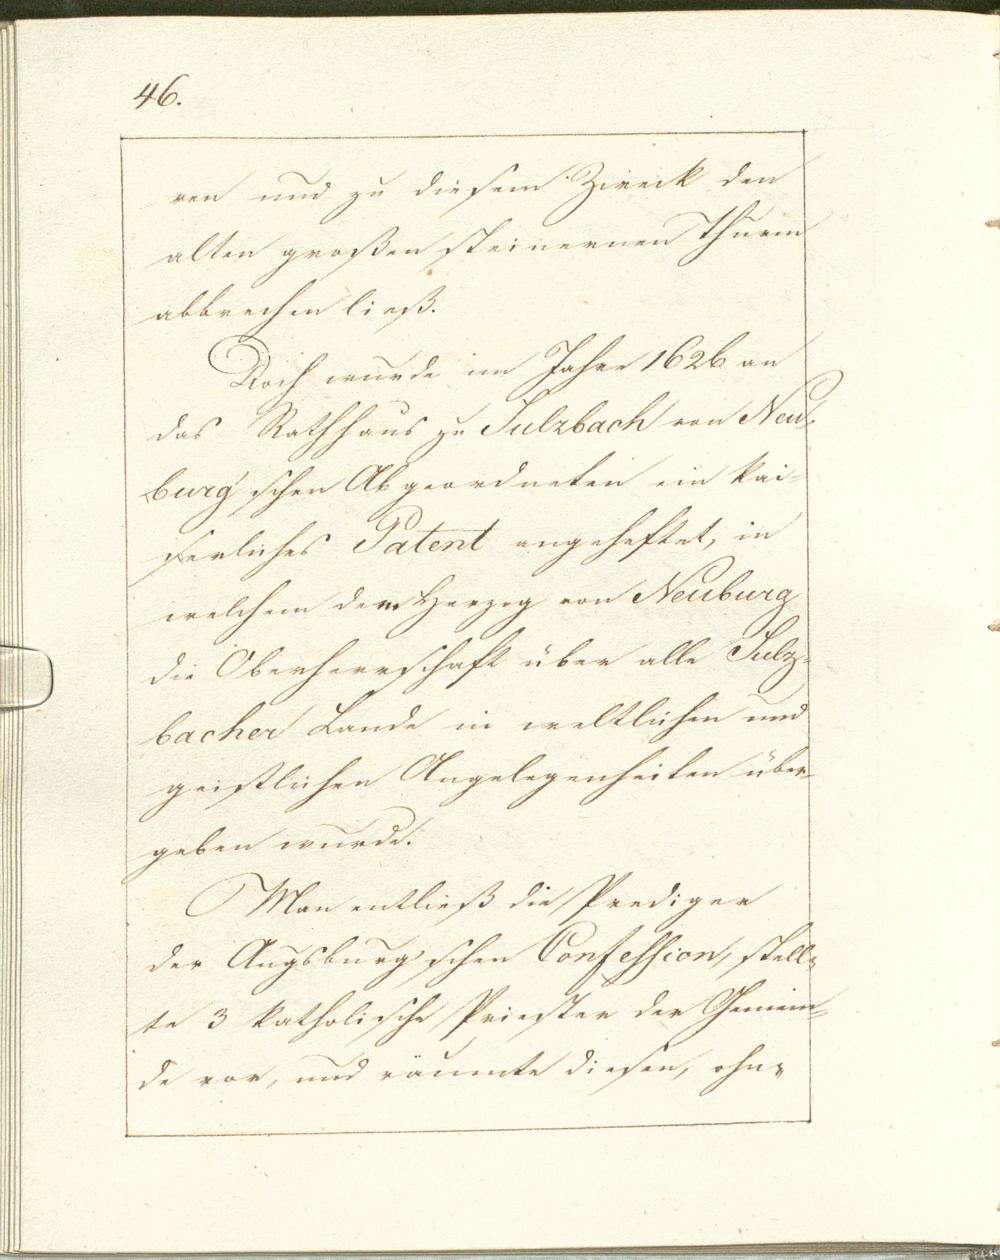 46.
ren und zu diesem Zweck den
alten großen steinernen Thurm
abbrechen ließ.
Doch wurde im Jahre 1626 an
das Rathhaus zu Sulzbach von Neu-
burg'schen Abgeordneten ein kai-
serliches Patent angeheftet, in
welchem dem Herzog von Neuburg
die Oberherrschaft über alle Sulz-
bacher Lande in weltlichen und
geistlichen Angelegenheiten über-
geben wurde.
Man entließ die Prediger
der Augsburg'schen Confession, stell-
te 3 katholische Priester der Gemein-
de vor, und räumte diesen, ohn-